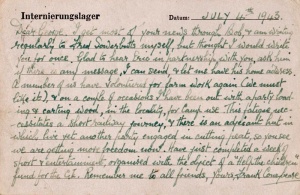 Internierungslager Datum: JULY 4th 1943.
Dear George. I get most of your news through Bob, & am writing
regularly to Fred myself, but thought I would write
you for once. Glad to hear Eric in partnership with you, ask him
if there is any message, I can send, & let me have his home address.
A number of us have volunteered for farm work again (we must
like it), & on a couple of occasions I have been out with a party load-
ing & carting wood, in the locality, for Camp use. This always nec-
essitates a short railway journey, & there is an adjacent hut in
which live yet another party engaged in cutting peat, so you see
we are getting more freedom now. Have just completed a week of
sport & entertainment, organised with the object of a "Help the children"
fund for the C.I. Remember me to all friends, Yours, Frank